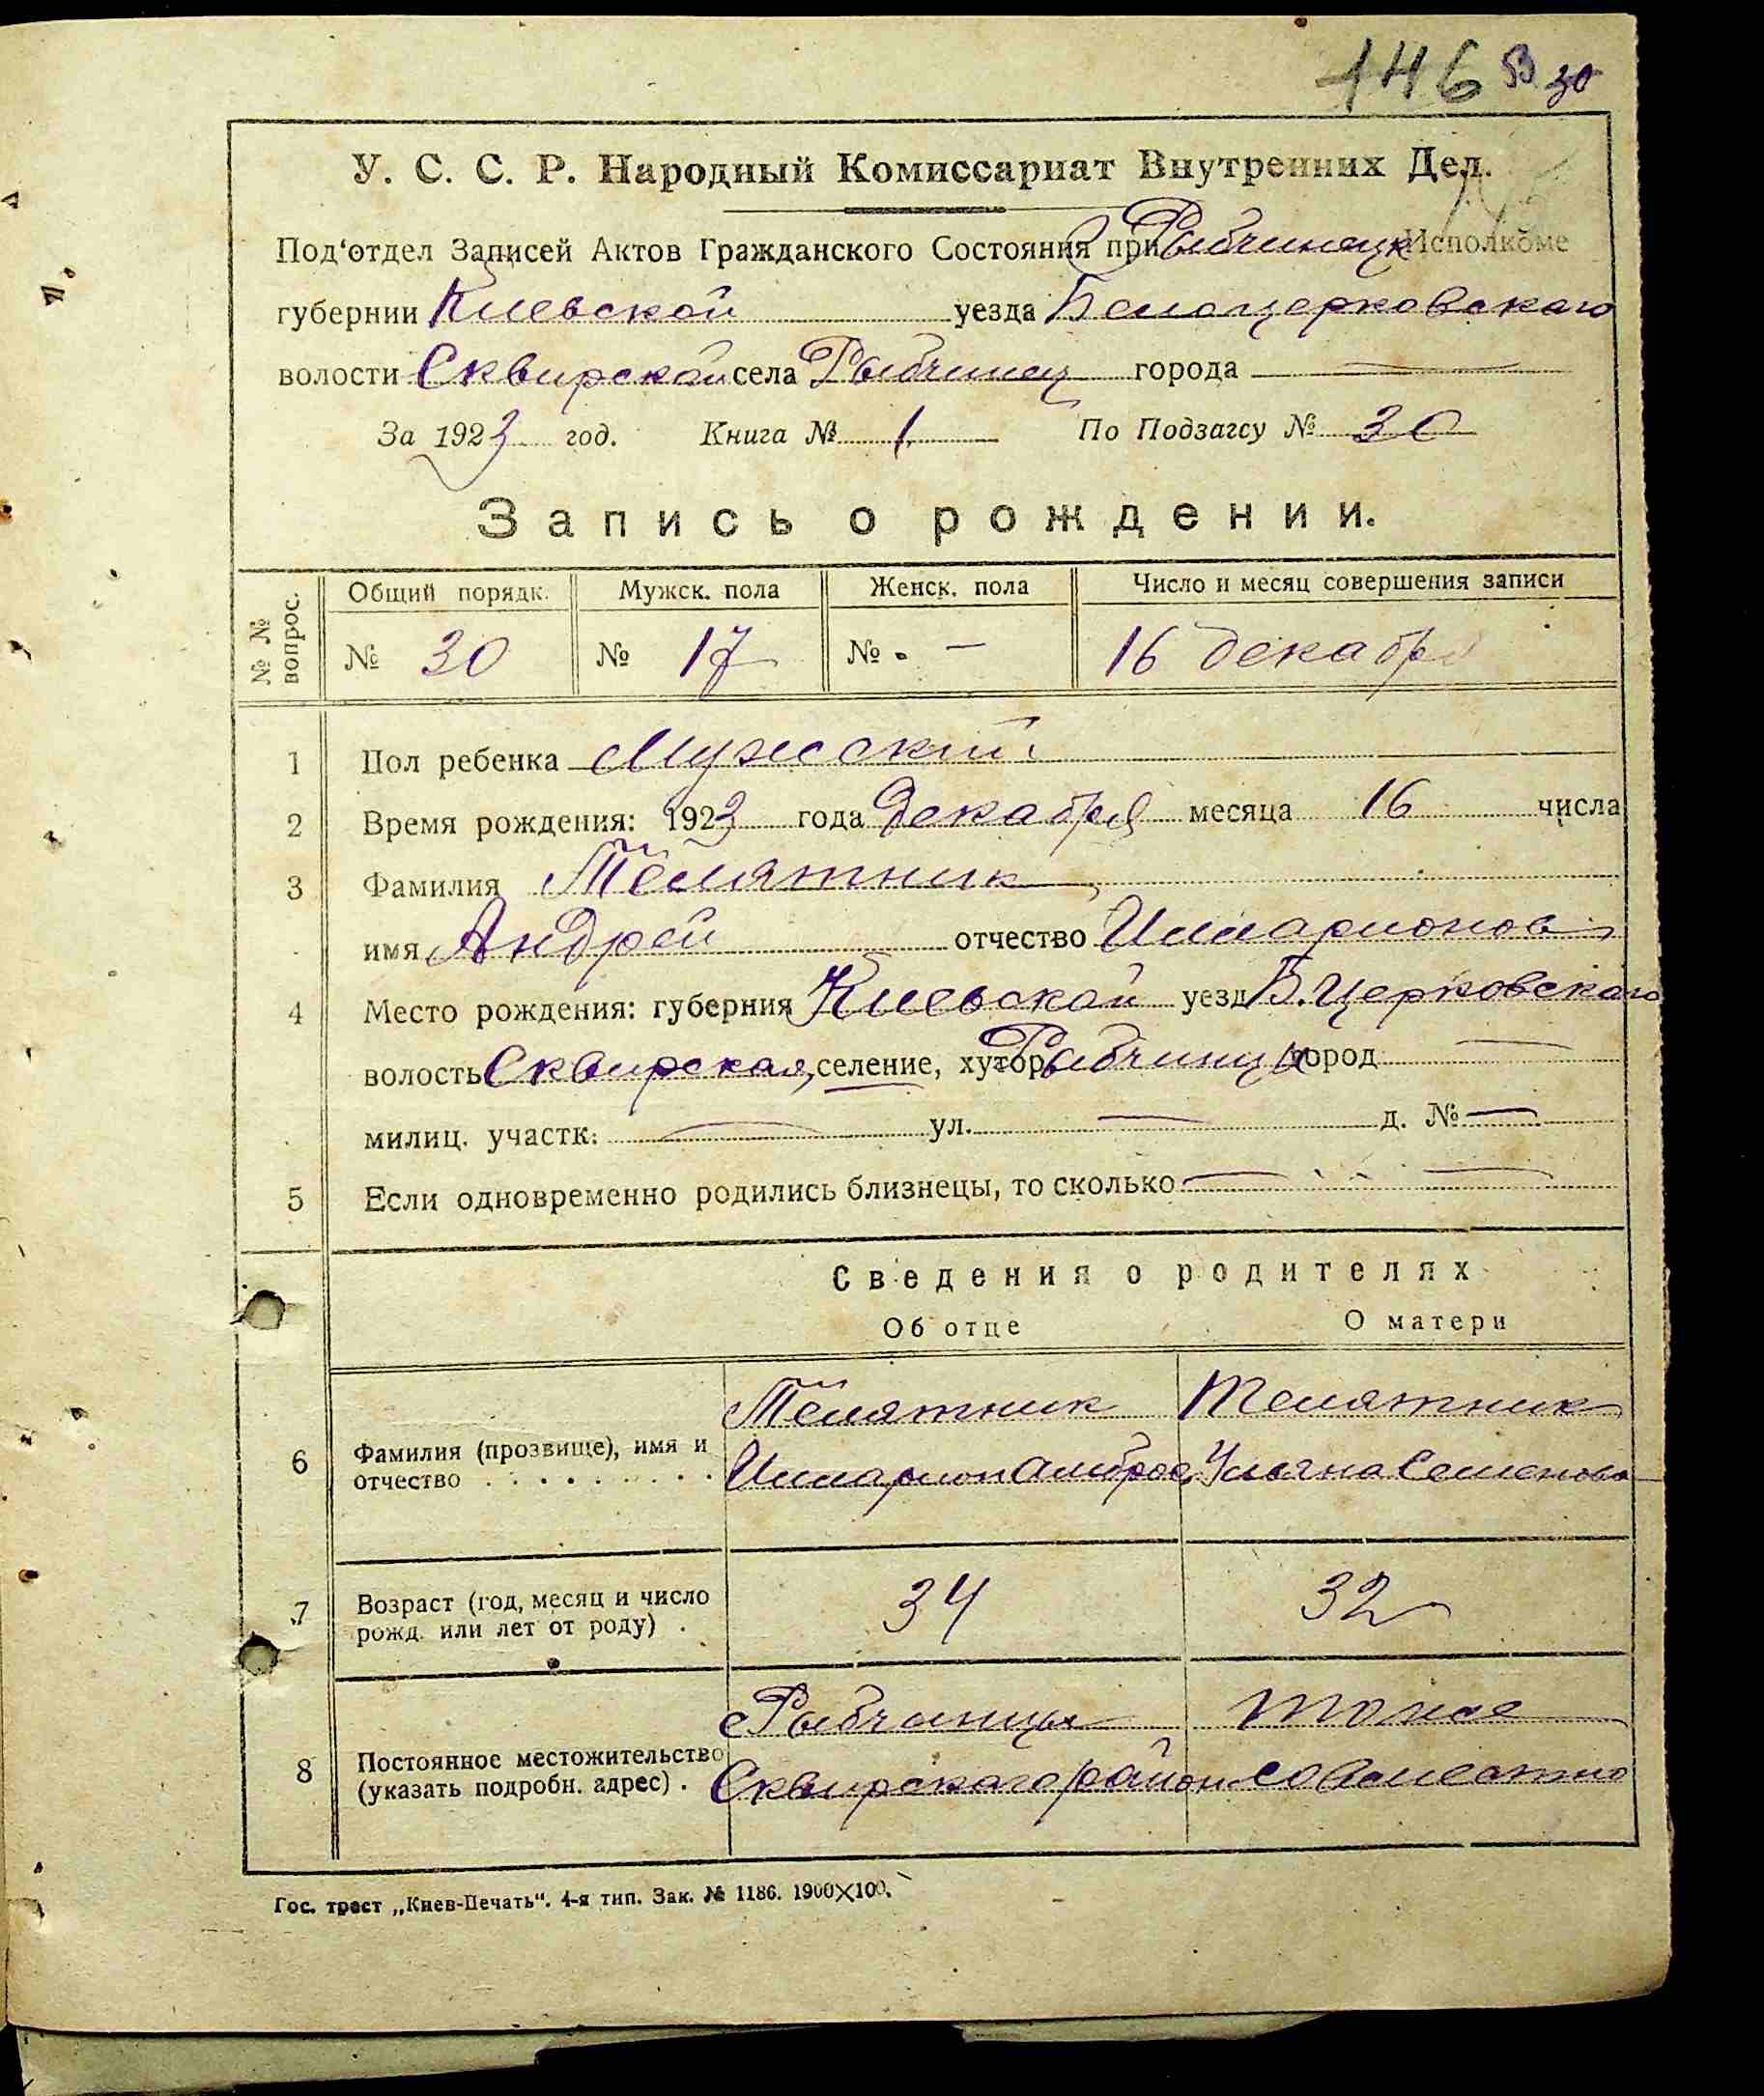 146 53 30
У. С. С. Р. Народный Комиссариат Внутренних Дел.
Под'отдел Записей Актов Гражданского Состояния при Рыбчинецк Исполкоме
губернии Киевской уезда Белоцерковскаго
волости Сквирской села Рыбчинец города —
За 1923 год. Книга № 1 По Подзагсу № 30
Запись о рождении.
№ № вопрос. Общий порядк. Мужск. пола Женск. пола Число и месяц совершения записи
№ 30 № 17 № — 16 декабря
1 Пол ребенка Мужский
2 Время рождения: 1923 года Декабря месяца 16 числа
3 Фамилия Телятник
имя Андрей отчество Илларионов
4 Место рождения: губерния Киевской уезд Б. Церковскаго
волость Сквирская, селение, хутор Рыбчинцы город —
милиц. участк. — ул. — д. № —
5 Если одновременно родились близнецы, то сколько — —
Сведения о родителях
Об отце О матери
Телятник Телятник
6 Фамилия (прозвище), имя и отчество . . . . . . . . Илларион Амброс. Ульяна Семенова
7 Возраст (год, месяц и число рожд. или лет от роду) . 34 32
Рыбчинцы тоже
8 Постоянное местожительство (указать подробн. адрес) . Сквирскаго район совместно
Гос. трест „Киев-Печать“. 4-я тип. Зак. № 1186. 1900×100.